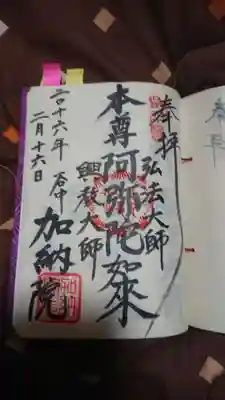 奉拝
弘法大師
本尊阿弥陀如來
興教大師
加納院
二〇十六年
二月十六日